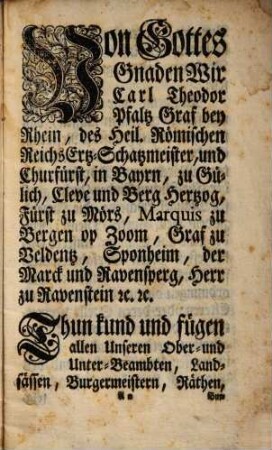 Von Gottes
Gnaden Wir
Carl Theodor
Pfaltz Graf bey
Rhein, des Heil. Römischen
ReichsErtz-Schatzmeister, und
Churfürst, in Bayrn, zu Gü-
lich, Cleve und Berg Hertzog,
Fürst zu Mörs, Marquis zu
Bergen op Zoom, Graf zu
Veldentz, Sponheim, der
Marck und Ravensperg, Herr
zu Ravenstein ꝛc. ꝛc.
Thun kund und fügen
allen Unseren Ober- und
Unter-Beambten, Land-
sässen, Burgermeistern, Räthen,